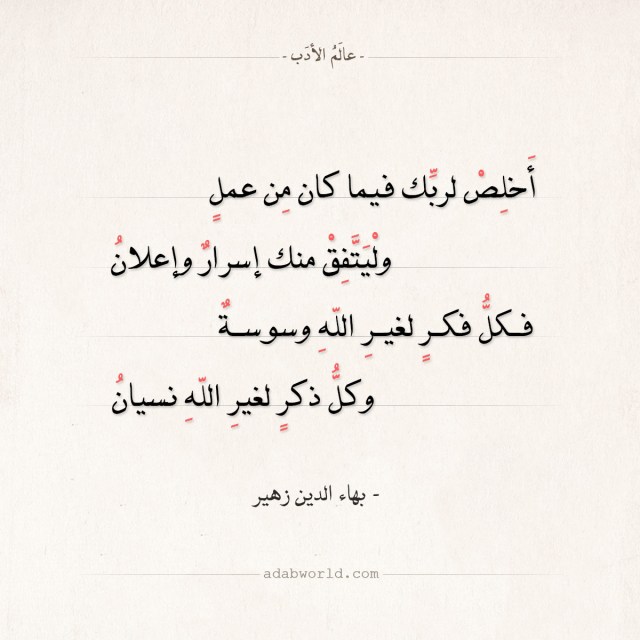 - عالَمُ الأدَب -
أَخلِصْ لربِّك فيما كان مِن عملٍ
ولْيَتَّفِقْ منك إسرارٌ وإعلانُ
فكلُّ فكرٍ لغيرِ اللّهِ وسوسةٌ
وكلُّ ذكرٍ لغيرِ اللّهِ نسيانُ
- بهاء الدين زهير
adabworld.com